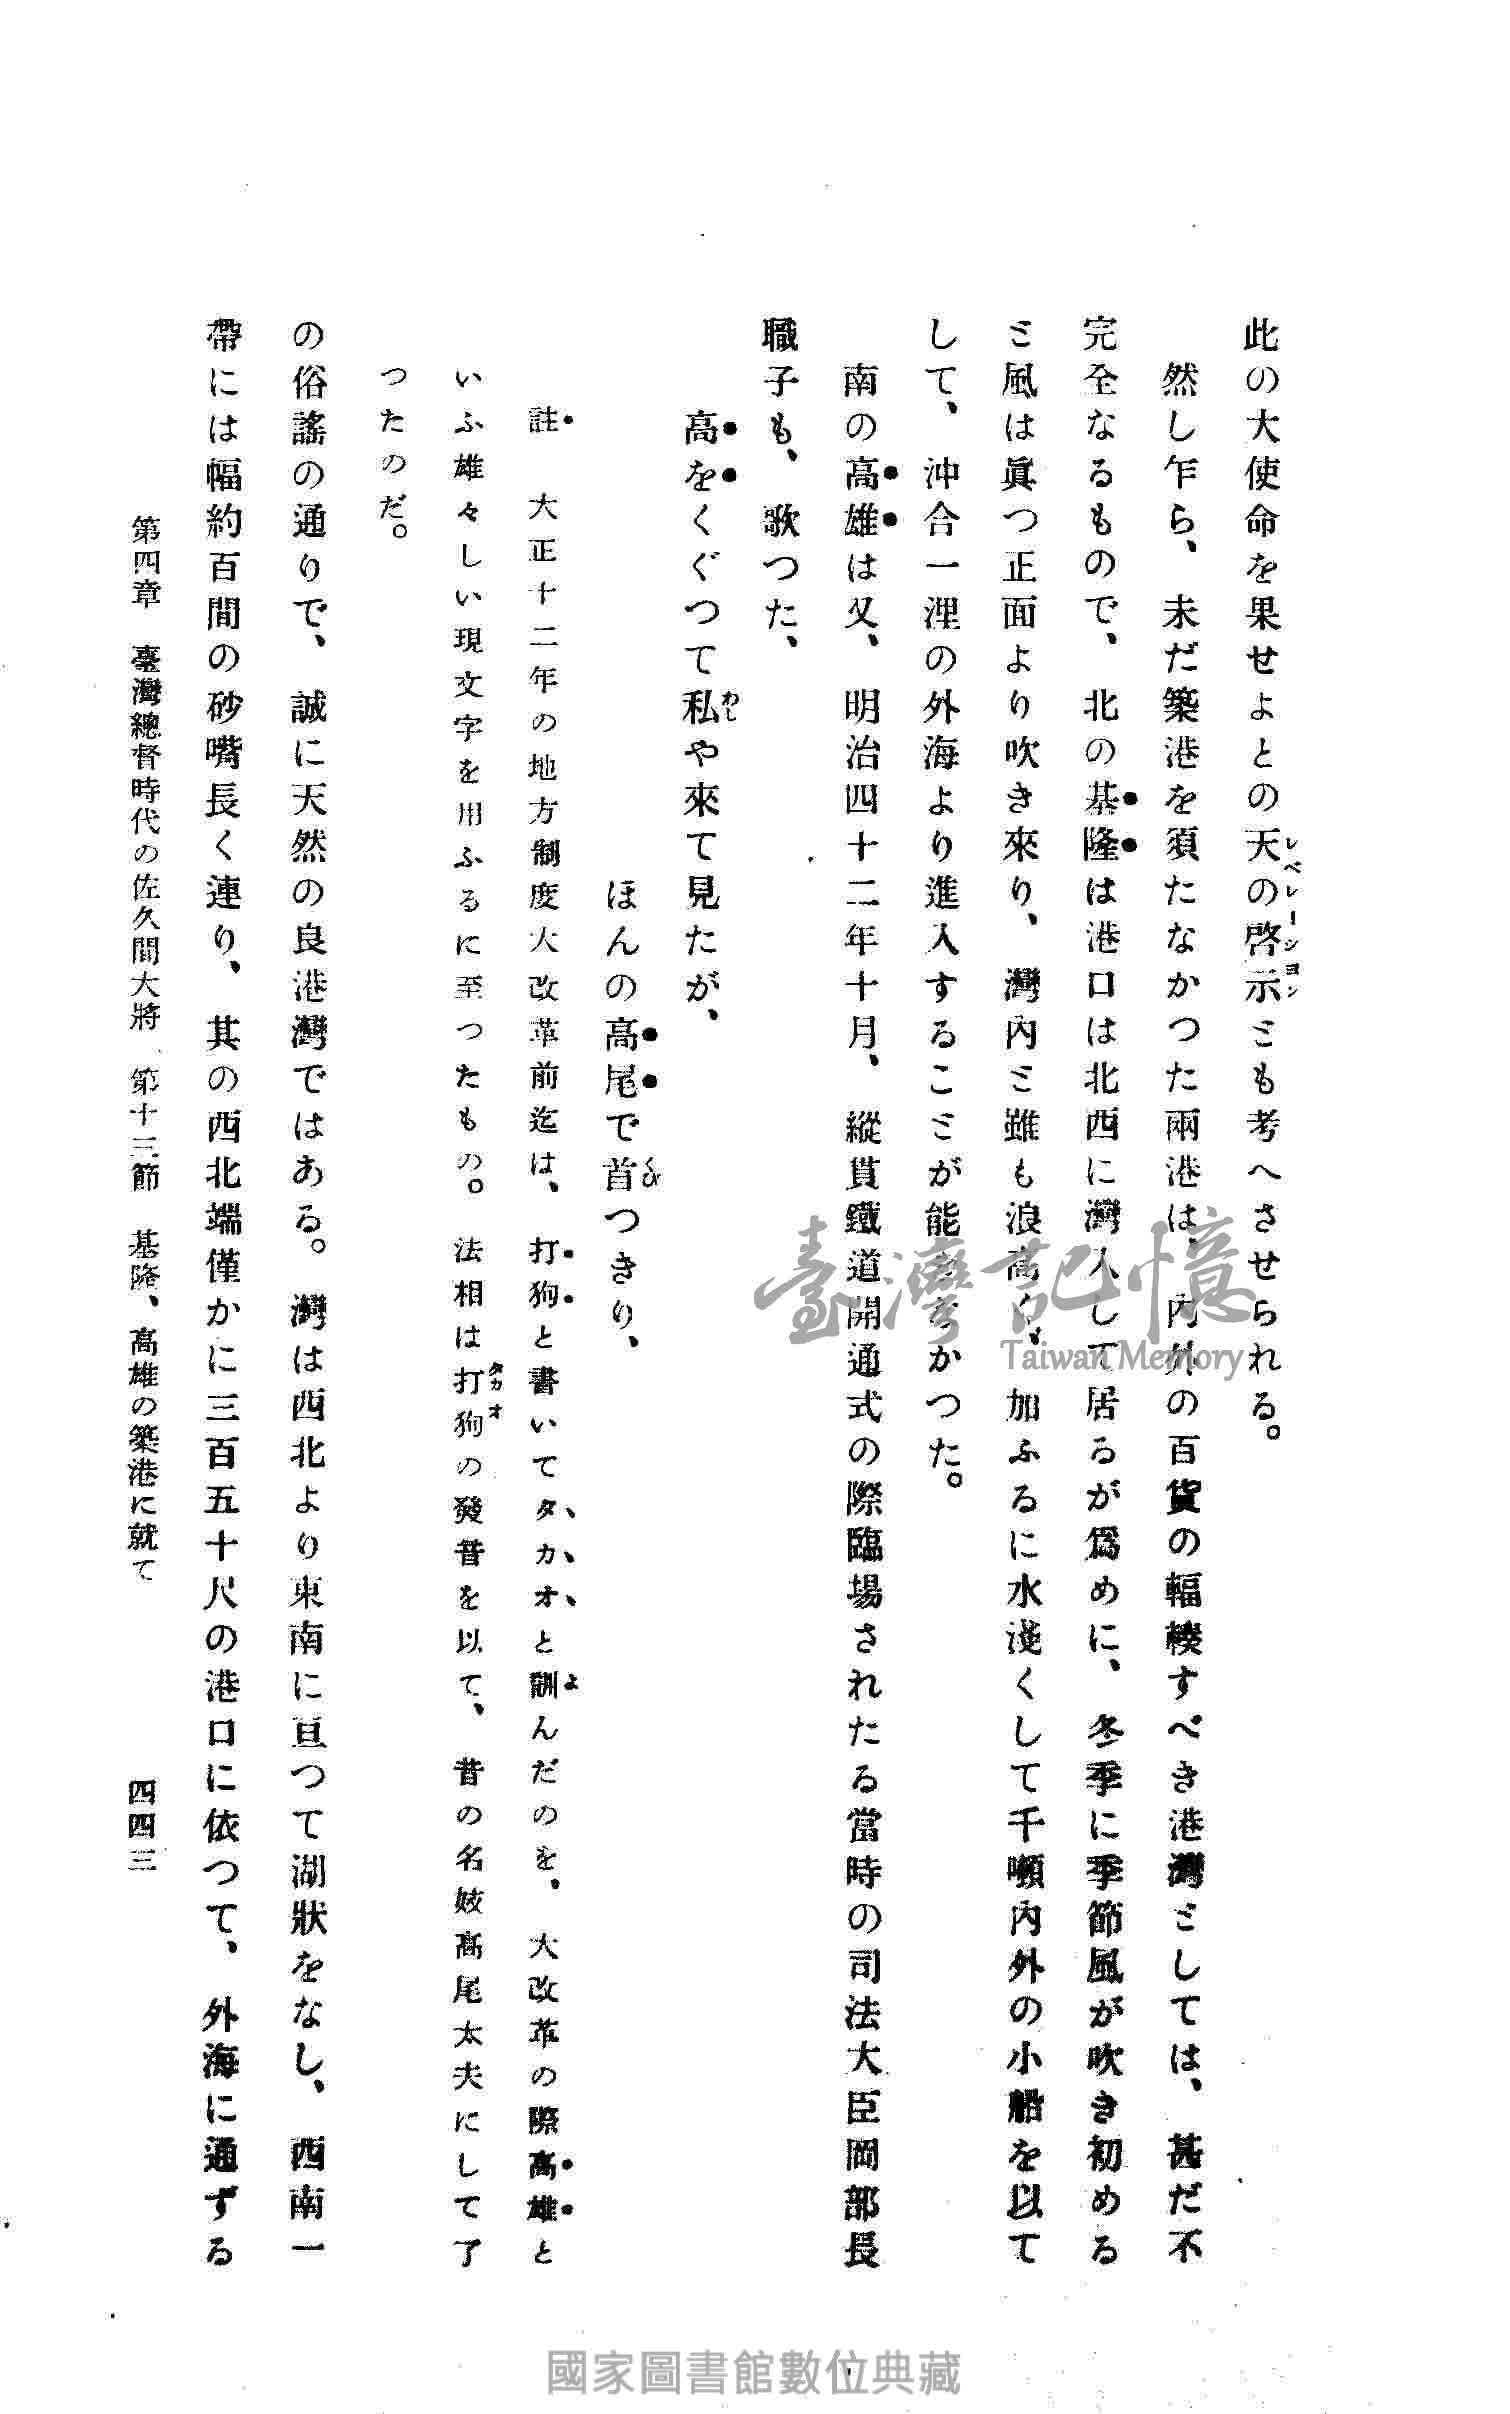 此の大使命を果せよとの天の啓示とも考へさせられる。
レベレーシヨン
然し乍ら、未だ築港を須たなかつた兩港は、內外の百貨の輻輳すべき港灣としては、甚だ不
完全なるもので、北の基隆は港口は北西に灣入して居るが爲めに、冬季に季節風が吹き初める
と風は眞つ正面より吹き來り、灣內と雖も浪高く、加ふるに水淺くして千噸內外の小船を以て
して、沖合一浬の外海より進入することが能きなかつた。
南の高雄は又、明治四十二年十月、縱貫鐵道開通式の際臨場されたる當時の司法大臣岡部長
職子も、歌つた、
高をくぐつて私や來て見たが、
わし
ほんの高尾で首つきり、
くび
註　大正十二年の地方制度大改革前迄は、打狗と書いてタカオと訓んだのを、大改革の際高雄と
よ
いふ雄々しい現文字を用ふるに至つたもの。法相は打狗の發音を以て、昔の名妓高尾太夫にして了
タカオ
つたのだ。
の俗謠の通りで、誠に天然の良港灣ではある。灣は西北より東南に亘つて湖狀をなし、西南一
帶には幅約百間の砂嘴長く連り、其の西北端僅かに三百五十尺の港口に依つて、外海に通ずる
第四章　臺灣總督時代の佐久間大將　第十三節　基隆、高雄の築港に就て
四四三
臺灣記憶
Taiwan Memory
國家圖書館數位典藏